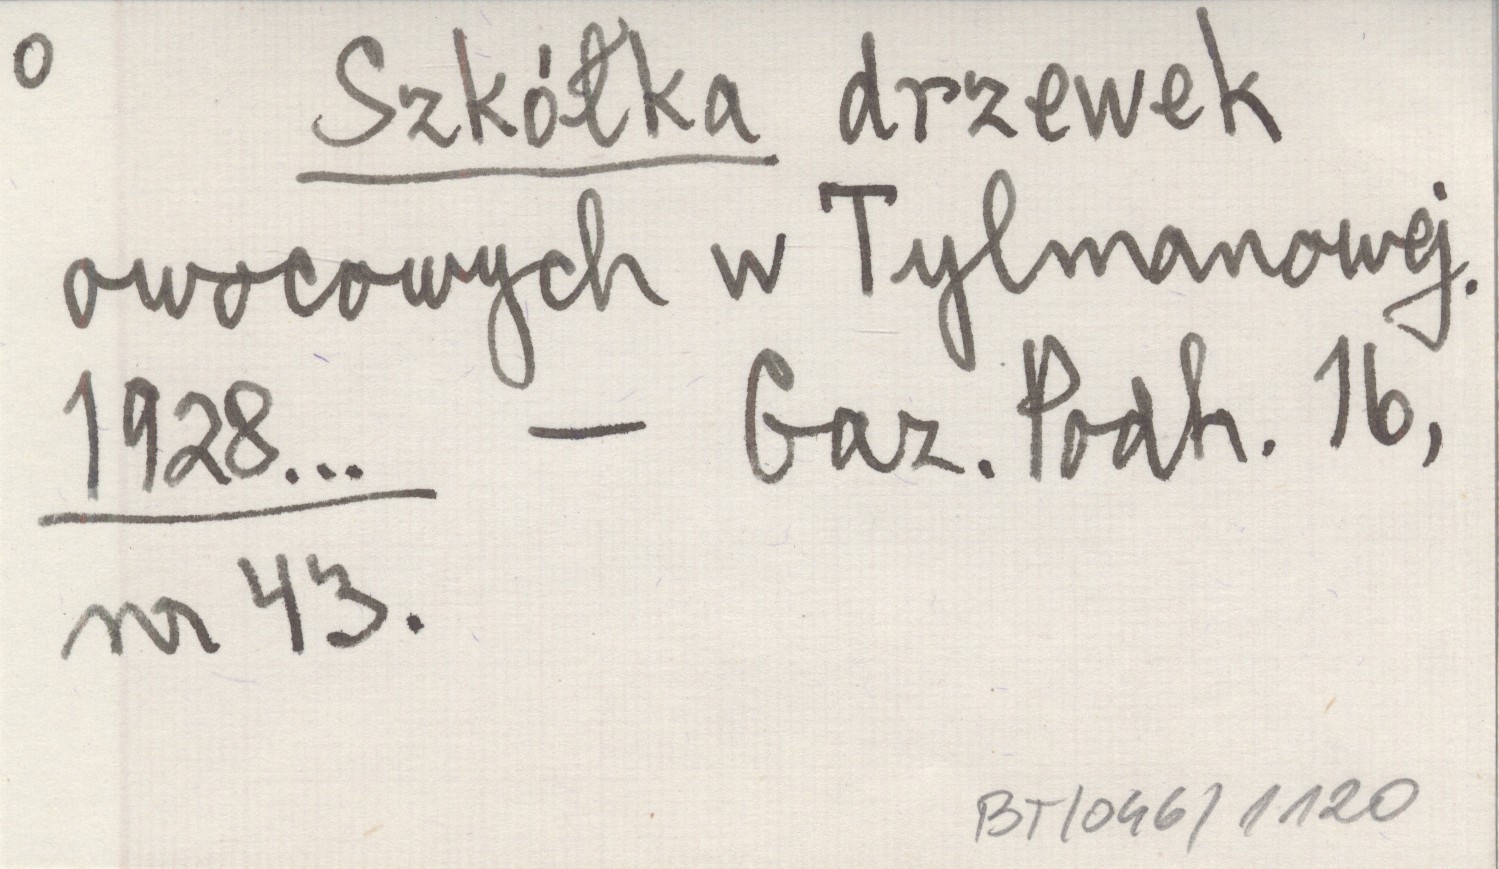 o Szkółka drzewek
owocowych w Tylmanowej.
1928... — Gaz. Podh. 16,
nr 43.
BT/046/1120